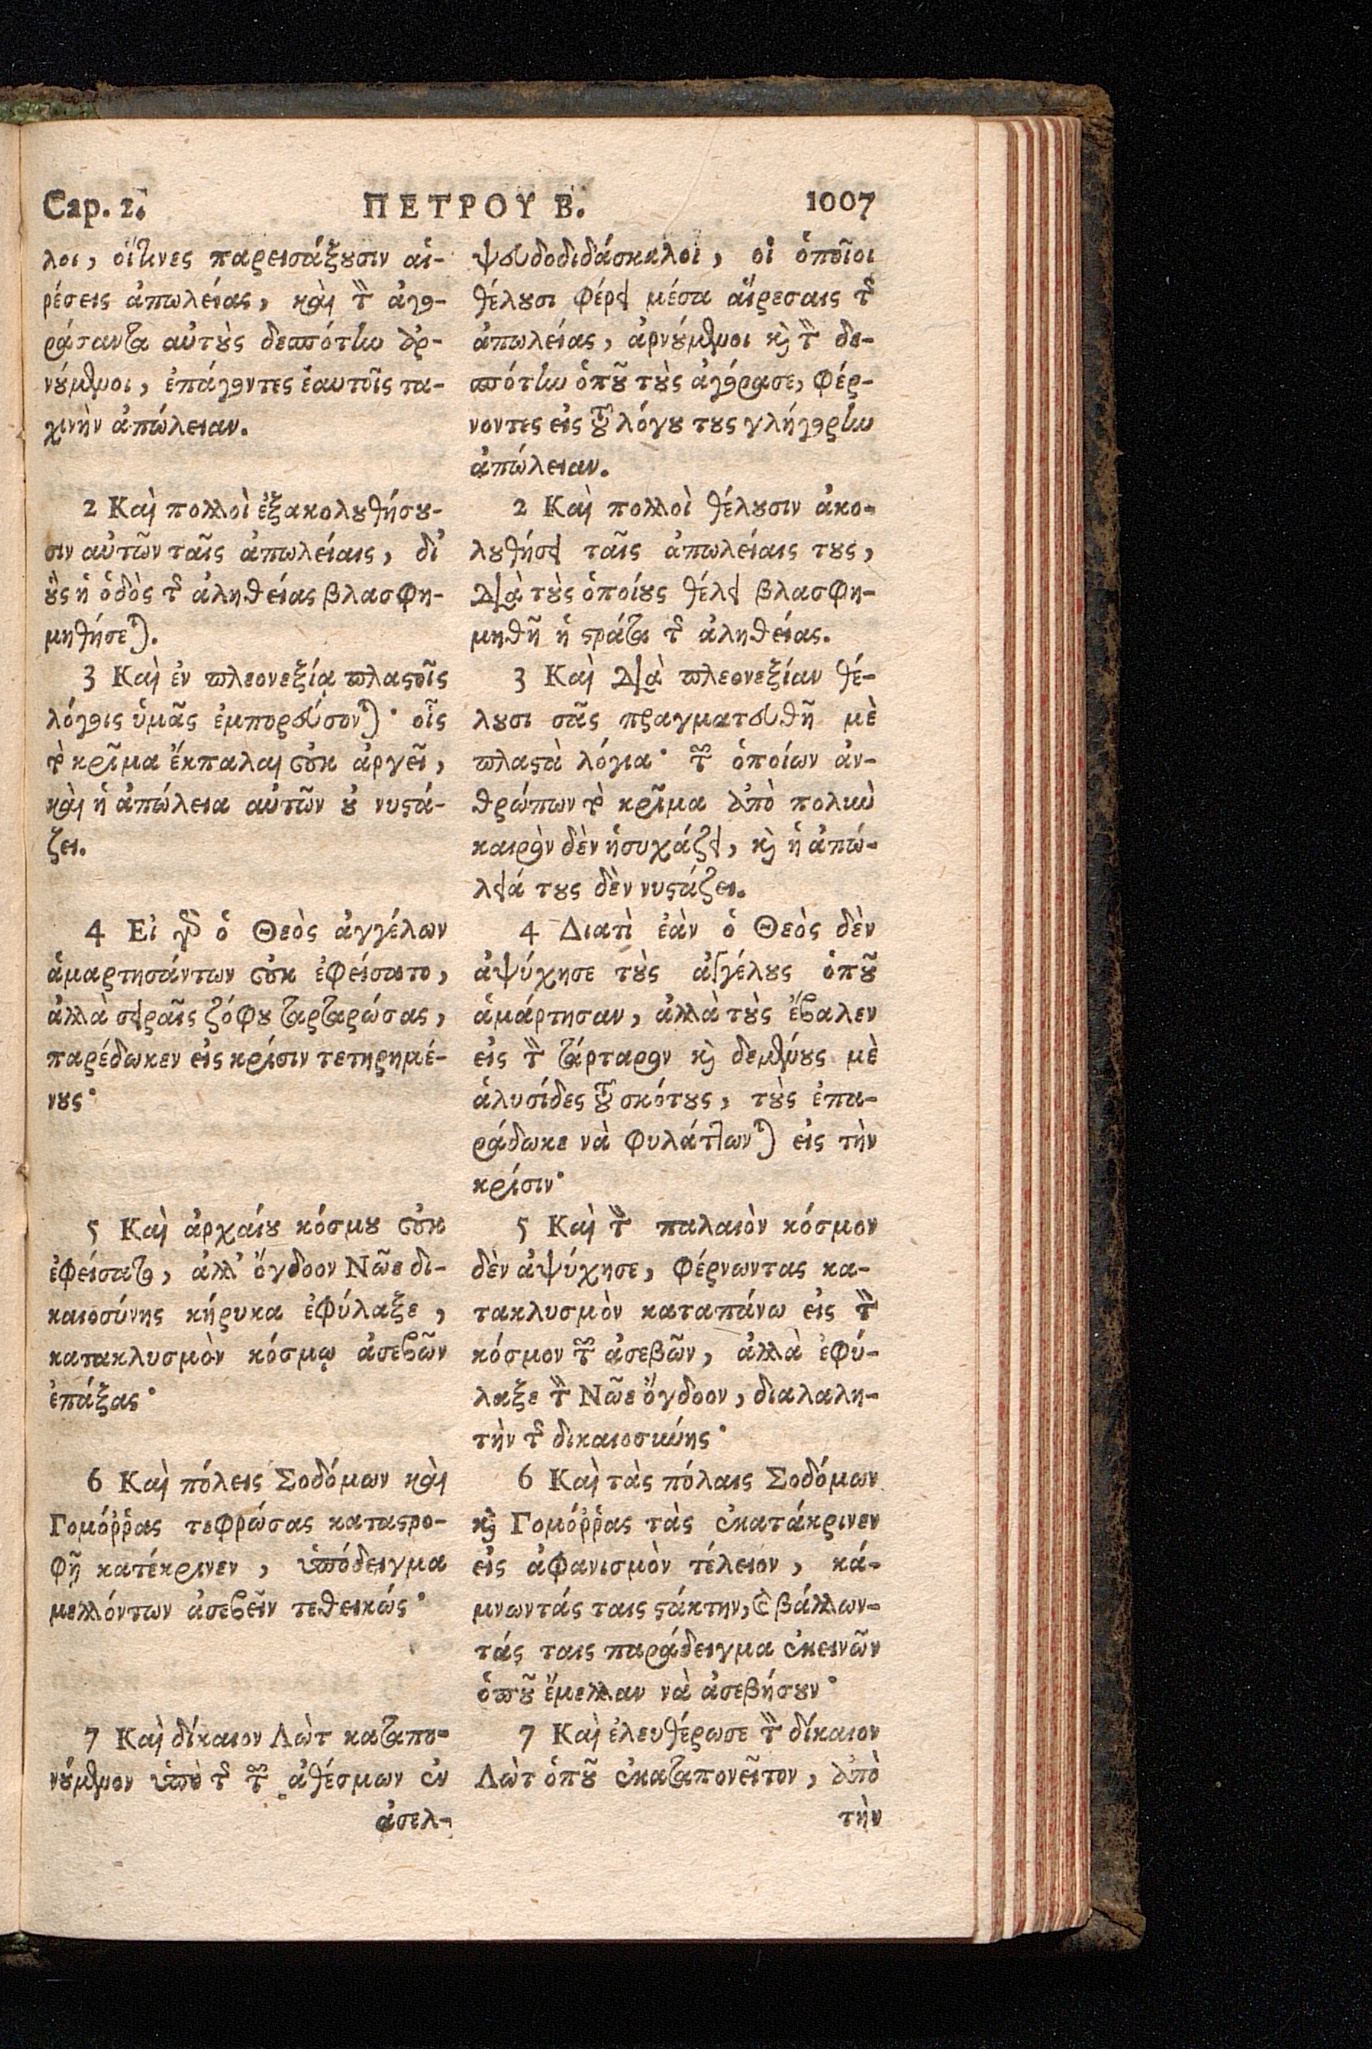 Cap. 2.
ΠΕΤΡΟΥ Β.
1007
λοι, οἵτινες παρεισάξουσιν αἱ-
ρέσεις ἀπωλείας, καὶ τὸν ἀγο-
ράσαντα αὐτοὺς δεσπότην ἀρ-
νούμενοι, ἐπάγοντες ἑαυτοῖς τα-
χινὴν ἀπώλειαν.
2 Καὶ πολλοὶ ἐξακολουθήσου-
σιν αὐτῶν ταῖς ἀπωλείαις, δι᾽
οὓς ἡ ὁδὸς τῆς ἀληθείας βλασφη-
μηθήσεται.
3 Καὶ ἐν πλεονεξίᾳ πλαστοῖς
λόγοις ὑμᾶς ἐμπορεύσονται· οἷς
τὸ κρῖμα ἔκπαλαι οὐκ ἀργεῖ,
καὶ ἡ ἀπώλεια αὐτῶν οὐ νυστά-
ζει.
4 Εἰ γὰρ ὁ Θεὸς ἀγγέλων
ἁμαρτησάντων οὐκ ἐφείσατο,
ἀλλὰ σειραῖς ζόφου ταρταρώσας,
παρέδωκεν εἰς κρίσιν τετηρημέ-
νους·
5 Καὶ ἀρχαίου κόσμου οὐκ
ἐφείσατο, ἀλλ᾽ ὄγδοον Νῶε δι-
καιοσύνης κήρυκα ἐφύλαξε,
κατακλυσμὸν κόσμῳ ἀσεβῶν
ἐπάξας·
6 Καὶ πόλεις Σοδόμων καὶ
Γομόῤῥας τεφρώσας καταστρο-
φῇ κατέκρινεν, ὑπόδειγμα
μελλόντων ἀσεβεῖν τεθεικώς·
7 Καὶ δίκαιον Λὼτ καταπο-
νούμενον ὑπὸ τῆς τῶν ἀθέσμων ἐν
ἀσελ-
ψευδοδιδάσκαλοι, οἱ ὁποῖοι
θέλουσι φέρει μέσα αἵρεσαις τῆς
ἀπωλείας, ἀρνούμενοι καὶ τὸν δε-
σπότην ὁποῦ τοὺς ἀγόρασε, φέρ-
νοντες εἰς τοῦ λόγου τους γλήγορην
ἀπώλειαν.
2 Καὶ πολλοὶ θέλουσιν ἀκο-
λουθήσει ταῖς ἀπωλείαις τους,
διὰ τοὺς ὁποίους θέλει βλασφη-
μηθῆ ἡ στράτα τῆς ἀληθείας.
3 Καὶ διὰ πλεονεξίαν θέ-
λουσι σᾶς πραγματευθῆ μὲ
πλαστὰ λόγια· τῶν ὁποίων ἀν-
θρώπων τὸ κρῖμα ἀπὸ πολὺν
καιρὸν δὲν ἡσυχάζει, καὶ ἡ ἀπώ-
λειά τους δὲν νυστάζει.
4 Διατὶ ἐὰν ὁ Θεὸς δὲν
ἀψύχησε τοὺς ἀγγέλους ὁποῦ
ἁμάρτησαν, ἀλλὰ τοὺς ἔβαλεν
εἰς τὸν τάρταρον καὶ δεμένους μὲ
ἁλυσίδες τοῦ σκότους, τοὺς ἐπα-
ράδωκε νὰ φυλάττωνται εἰς τὴν
κρίσιν·
5 Καὶ τὸν παλαιὸν κόσμον
δὲν ἀψύχησε, φέρνωντας κα-
τακλυσμὸν καταπάνω εἰς τὸν
κόσμον τῶν ἀσεβῶν, ἀλλὰ ἐφύ-
λαξε τὸν Νῶε ὄγδοον, διαλαλη-
τὴν τῆς δικαιοσύνης·
6 Καὶ τὰς πόλαις Σοδόμων
καὶ Γομόῤῥας τὰς ἐκατάκρινεν
εἰς ἀφανισμὸν τέλειον, κά-
μνωντάς ταις στάκτην, καὶ βάλλων-
τάς ταις παράδειγμα ἐκεινῶν
ὁποῦ ἔμελλαν νὰ ἀσεβήσουν·
7 Καὶ ἐλευθέρωσε τὸν δίκαιον
Λὼτ ὁποῦ ἐκαταπονεῖτον, ἀπὸ
τὴν